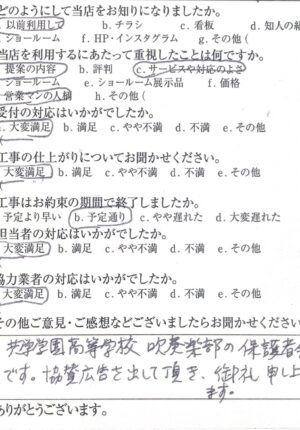 どのようにして当店をお知りになりましたか。
以前利用して b. チラシ c. 看板 d. 知人の紹
ショールーム f. HP・インスタグラム g. その他(
当店を利用するにあたって重視したことは何ですか。
提案の内容 b. 評判 c. サービスや対応のよさ
ショールーム e. ショールーム展示品 f. 価格
営業マンの人柄 h. その他(
受付の対応はいかがでしたか。
a. 大変満足 b. 満足 c. やや不満 d. 不満 e. その他
工事の仕上がりについてお聞かせください。
大変満足 b. 満足 c. やや不満 d. 不満 e. その他
工事はお約束の期間で終了しましたか。
予定より早い b. 予定通り c. やや遅れた d. 大変遅れた
担当者の対応はいかがでしたか。
大変満足 b. 満足 c. やや不満 d. 不満 e. その他
協力業者の対応はいかがでしたか。
大変満足 b. 満足 c. やや不満 d. 不満 e. その他
その他ご意見・ご感想などございましたらお聞かせください
学園高等学校 吹奏楽部の保護者
です。協賛広告を出して頂き、御礼申し上
ます。
ありがとうございます。